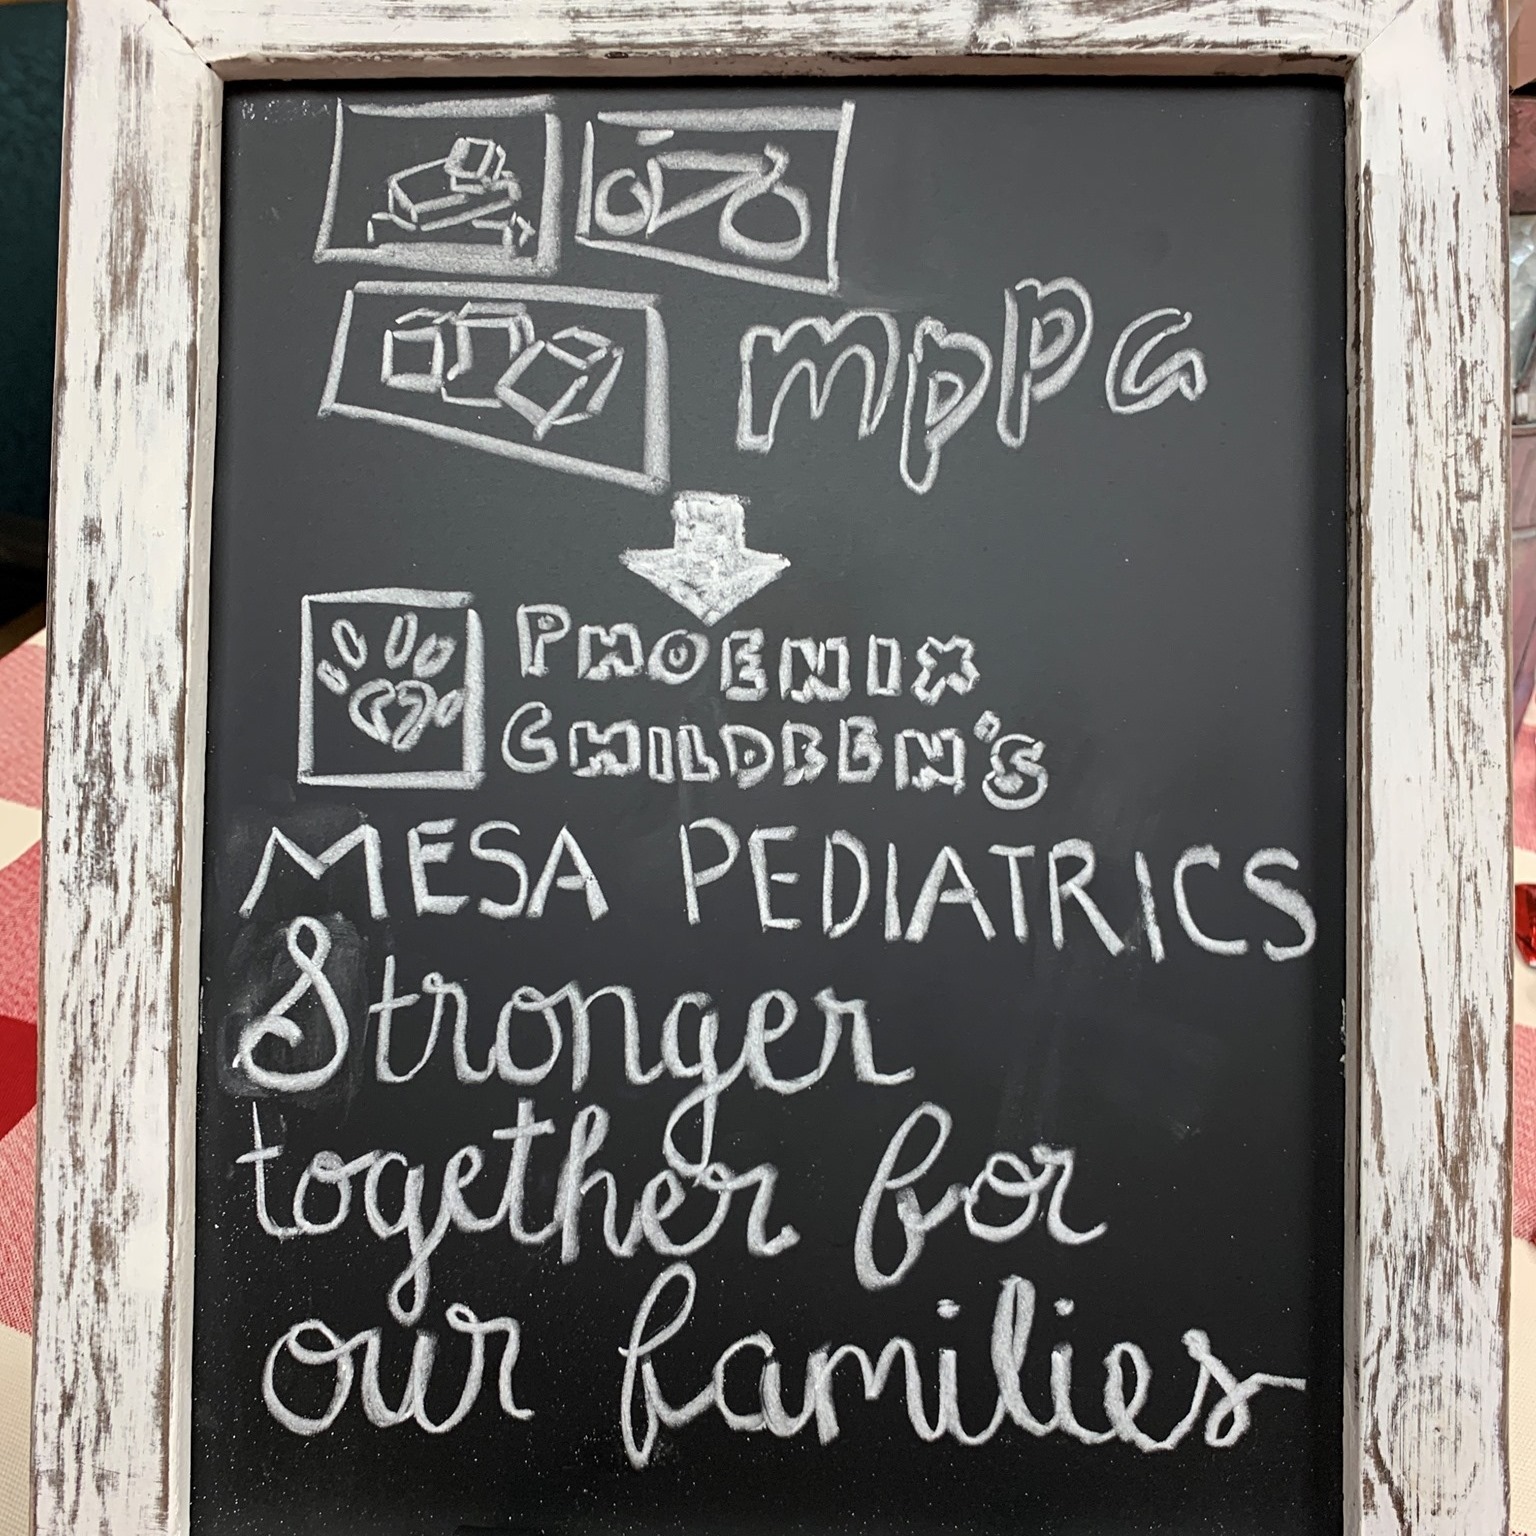 mppa
PHOENIX
CHILDREN'S
MESA PEDIATRICS
Stronger
together for
our families